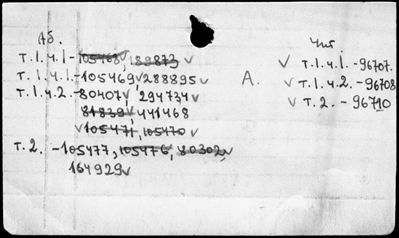 Аб.
т.1.ч.1-105468✓, 189873✓
т.1.ч.1.-105469✓288895✓
т.1.ч.2.-80407✓, 294734✓
81839✓, 441468
✓105471, 105470✓
т.2. -105477, 105476, 80302✓
164929✓
А.
Чит.
✓ т.1.ч.1.-96707.
✓ т.1.ч.2.-96708
✓ т.2.-96710